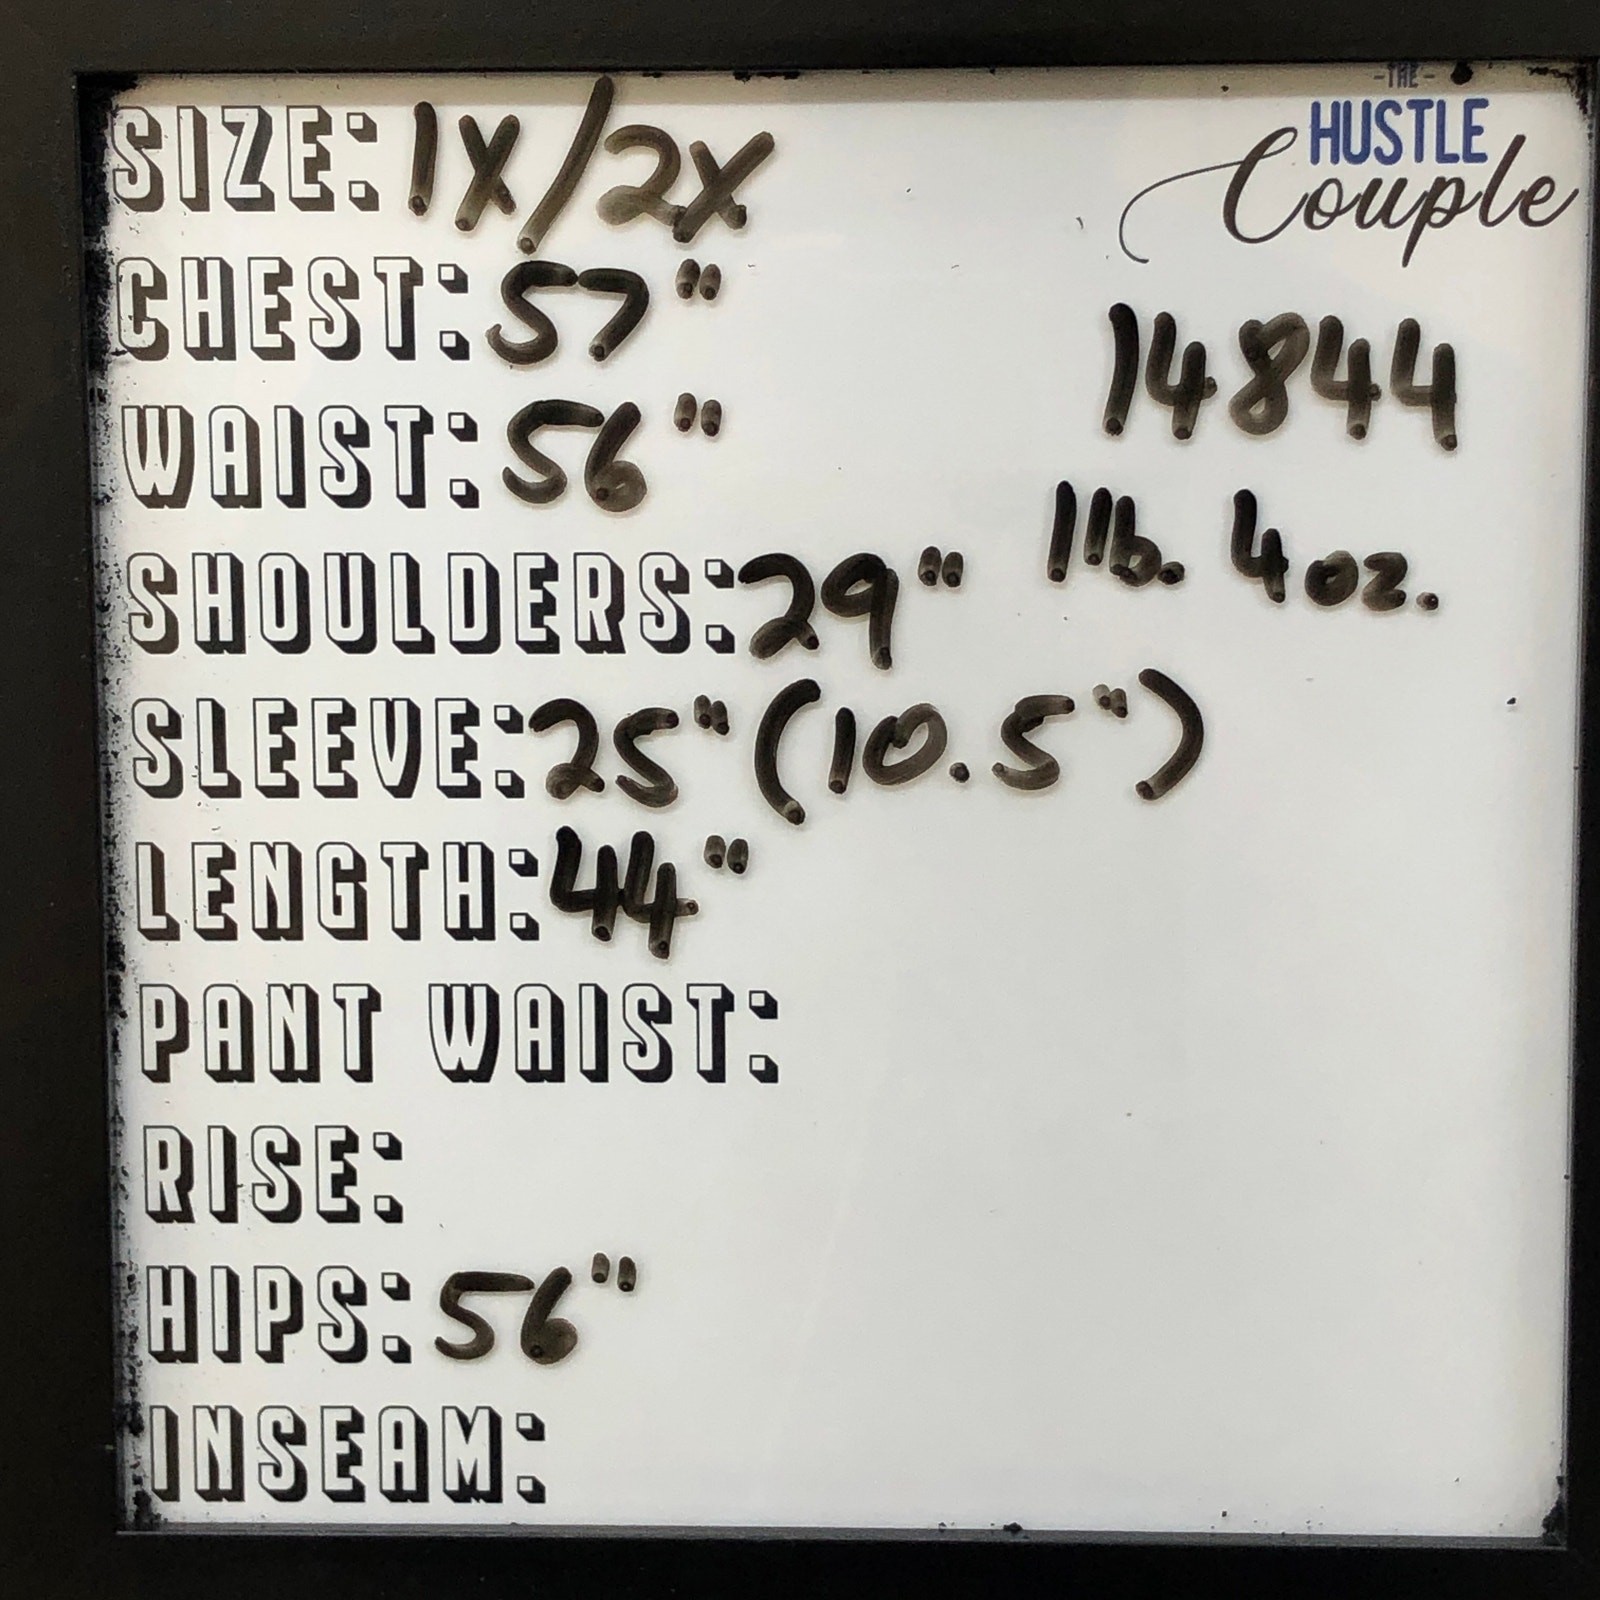 -THE-
HUSTLE
Couple
SIZE: 1X/2X
CHEST: 57"
14844
WAIST: 56"
1lb. 4oz.
SHOULDERS: 29"
SLEEVE: 25" (10.5")
LENGTH: 44"
PANT WAIST:
RISE:
HIPS: 56"
INSEAM: